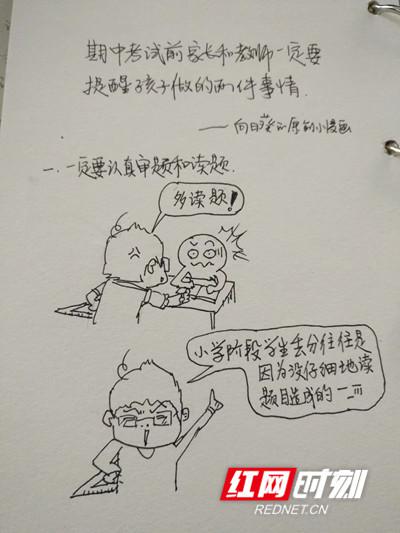 期中考试前家长和教师一定要
提醒孩子做的两件事情.
——向日葵的原创小漫画
一. 一定要认真审题和读题.
多读题!
小学阶段学生丢分往往是
因为没仔细地读
题目造成的
红网时刻
REDNET.CN